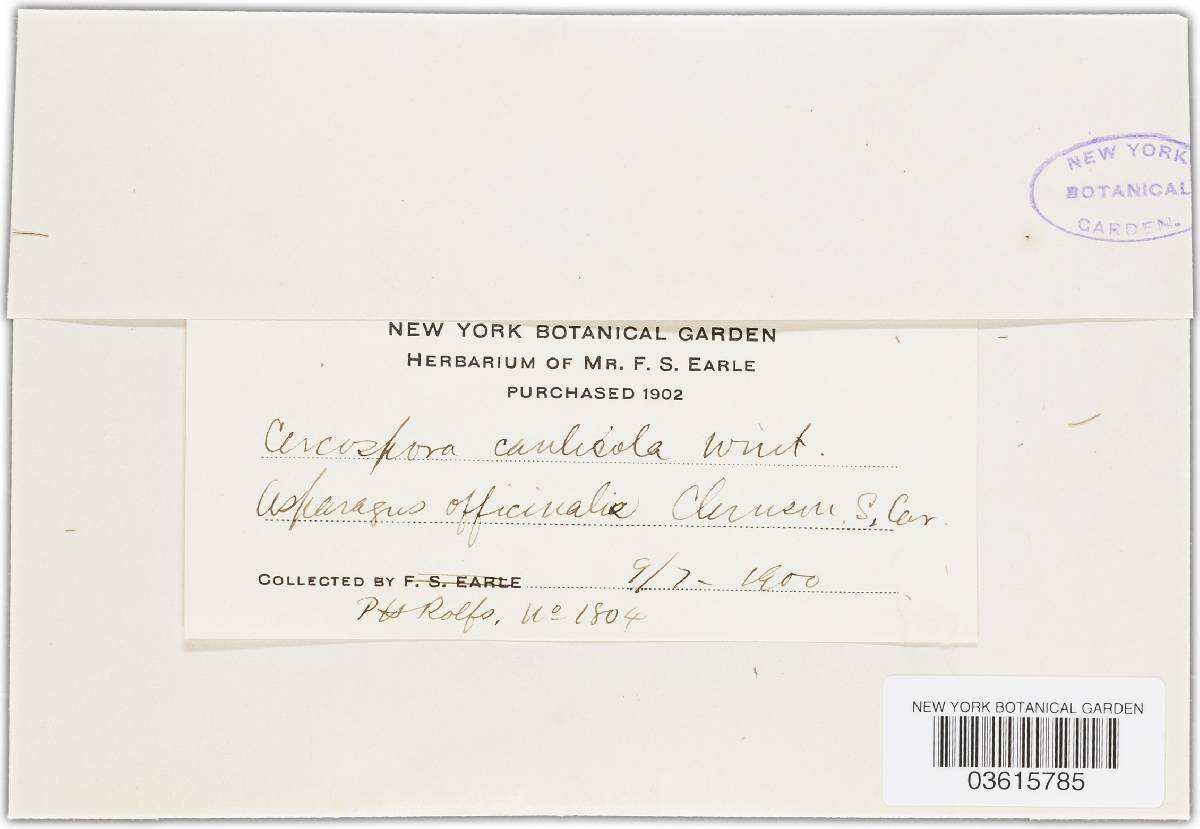 NEW YORK
BOTANICAL
GARDEN.
NEW YORK BOTANICAL GARDEN
HERBARIUM OF MR. F. S. EARLE
PURCHASED 1902
Cercospora caulicola Wint.
Asparagus officinalis Clemson, S. Car.
COLLECTED BY F. S. EARLE 9/7- 1900
PH Rolfs. No 1804
NEW YORK BOTANICAL GARDEN
03615785